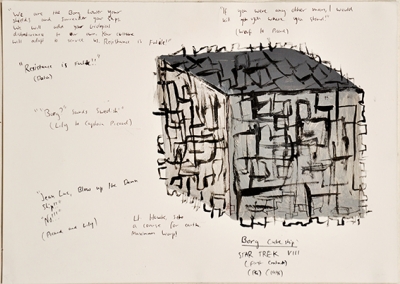 We are the Borg Lower your
shields and surrender your ships
We will add your biological
distinctiveness to our own. Your culture
will adapt to service us. Resistance is futile!"
"If you were any other man, I would
kill you where you stand!"
(Worf to Picard)
"Resistance is futile!"
(Data)
"Borg?" Sounds Swedish!"
(Lily to Captain Picard)
"Jean Luc, Blow up the Damn
Ship!"
"No!"
(Picard and Lily)
Lt Hawk, Set
a course for earth
Maximum Warp!
Borg Cube ship:
STAR TREK VIII
(First Contact)